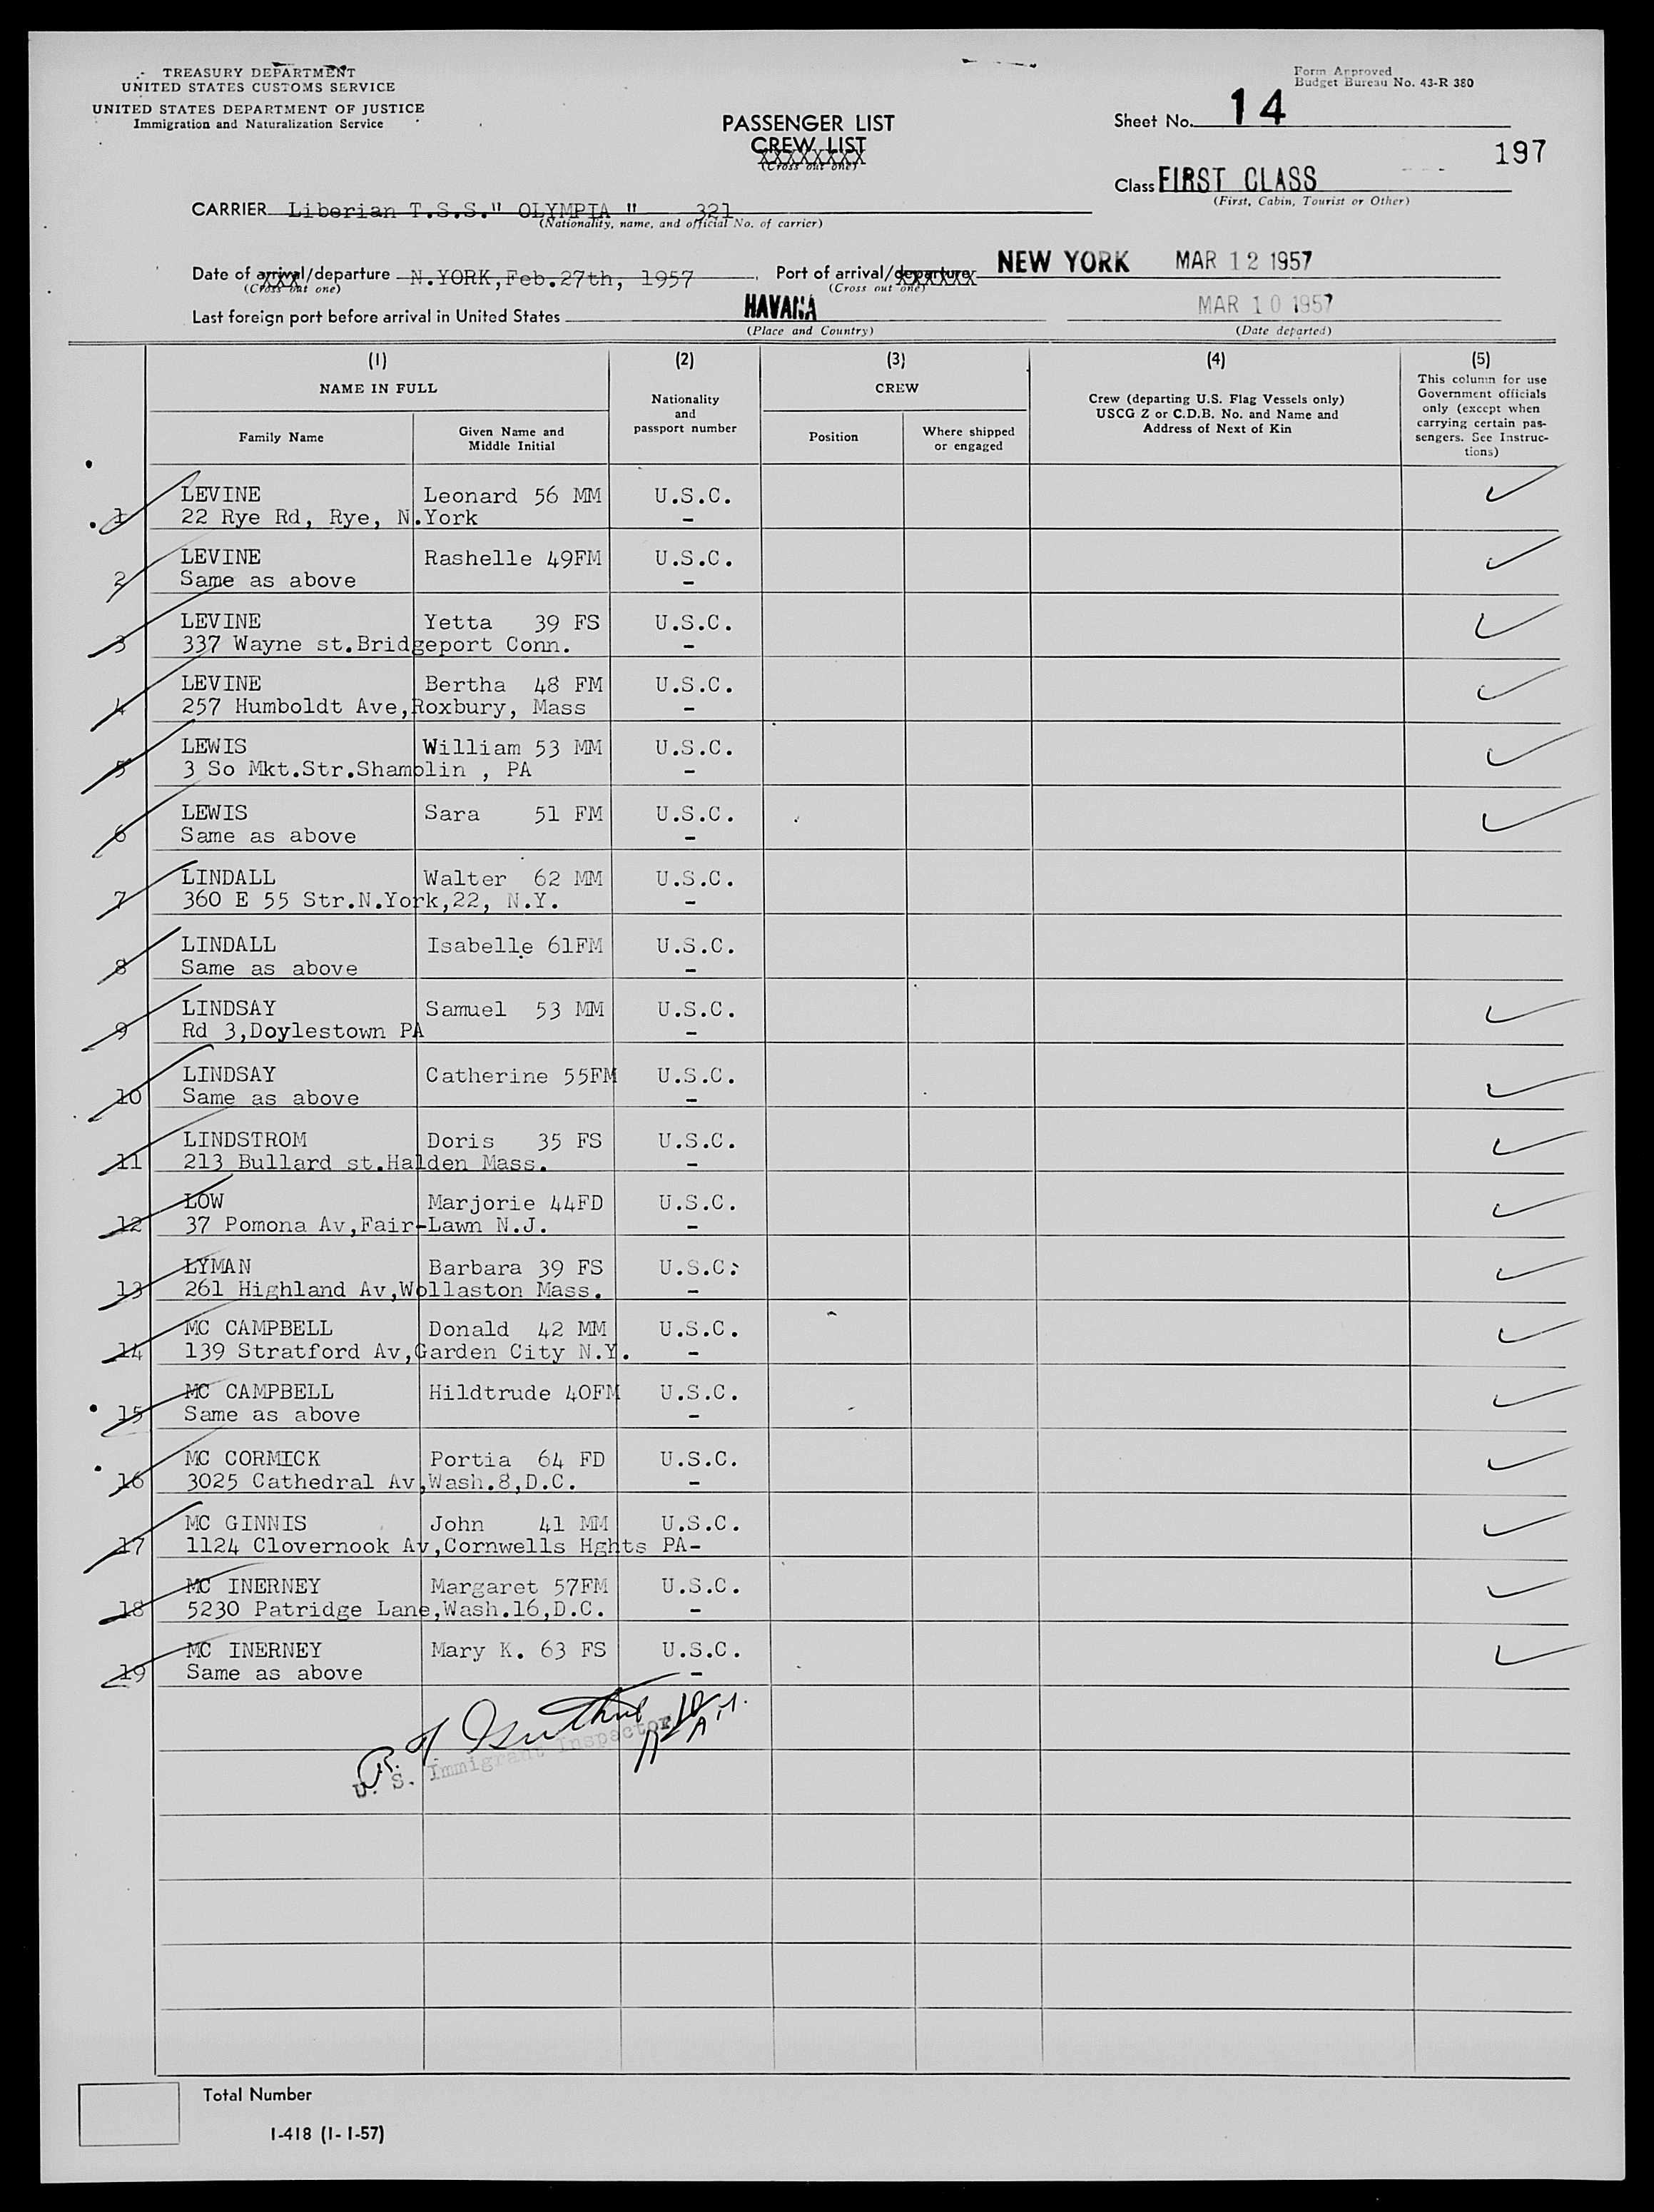 TREASURY DEPARTMENT
UNITED STATES CUSTOMS SERVICE
UNITED STATES DEPARTMENT OF JUSTICE
Immigration and Naturalization Service
Form Approved
Budget Bureau No. 43-R 380
PASSENGER LIST
CREW LIST
(Cross out one)
Sheet No. 14
197
Class FIRST CLASS
(First, Cabin, Tourist or Other)
CARRIER Liberian T.S.S." OLYMPIA " 321
(Nationality, name, and official No. of carrier)
Date of arrival/departure N.YORK,Feb.27th, 1957 Port of arrival/departure NEW YORK MAR 12 1957
(Cross out one) (Cross out one)
Last foreign port before arrival in United States HAVANA MAR 10 1957
(Place and Country) (Date departed)
(1) (2) (3) (4) (5)
NAME IN FULL
Family Name
Given Name and
Middle Initial
Nationality
and
passport number
CREW
Position
Where shipped
or engaged
Crew (departing U.S. Flag Vessels only)
USCG Z or C.D.B. No. and Name and
Address of Next of Kin
This column for use
Government officials
only (except when
carrying certain pas-
sengers. See Instruc-
tions)
LEVINE Leonard 56 MM U.S.C.
1 22 Rye Rd, Rye, N.York -
LEVINE Rashelle 49FM U.S.C.
2 Same as above -
LEVINE Yetta 39 FS U.S.C.
3 337 Wayne st.Bridgeport Conn. -
LEVINE Bertha 48 FM U.S.C.
4 257 Humboldt Ave,Roxbury, Mass -
LEWIS William 53 MM U.S.C.
5 3 So Mkt.Str.Shamblin , PA -
LEWIS Sara 51 FM U.S.C.
6 Same as above -
LINDALL Walter 62 MM U.S.C.
7 360 E 55 Str.N.York,22, N.Y. -
LINDALL Isabelle 61FM U.S.C.
8 Same as above -
LINDSAY Samuel 53 MM U.S.C.
9 Rd 3,Doylestown PA -
LINDSAY Catherine 55FM U.S.C.
10 Same as above -
LINDSTROM Doris 35 FS U.S.C.
11 213 Bullard st.Halden Mass. -
LOW Marjorie 44FD U.S.C.
12 37 Pomona Av,Fair-Lawn N.J. -
LYMAN Barbara 39 FS U.S.C:
13 261 Highland Av,Wollaston Mass. -
MC CAMPBELL Donald 42 MM U.S.C.
14 139 Stratford Av,Garden City N.Y. -
MC CAMPBELL Hildtrude 40FM U.S.C.
15 Same as above -
MC CORMICK Portia 64 FD U.S.C.
16 3025 Cathedral Av,Wash.8,D.C. -
MC GINNIS John 41 MM U.S.C.
17 1124 Clovernook Av,Cornwells Hghts PA-
MC INERNEY Margaret 57FM U.S.C.
18 5230 Patridge Lane,Wash.16,D.C. -
MC INERNEY Mary K. 63 FS U.S.C.
19 Same as above -
U. S. Immigrant Inspector
Total Number
I-418 (1-1-57)